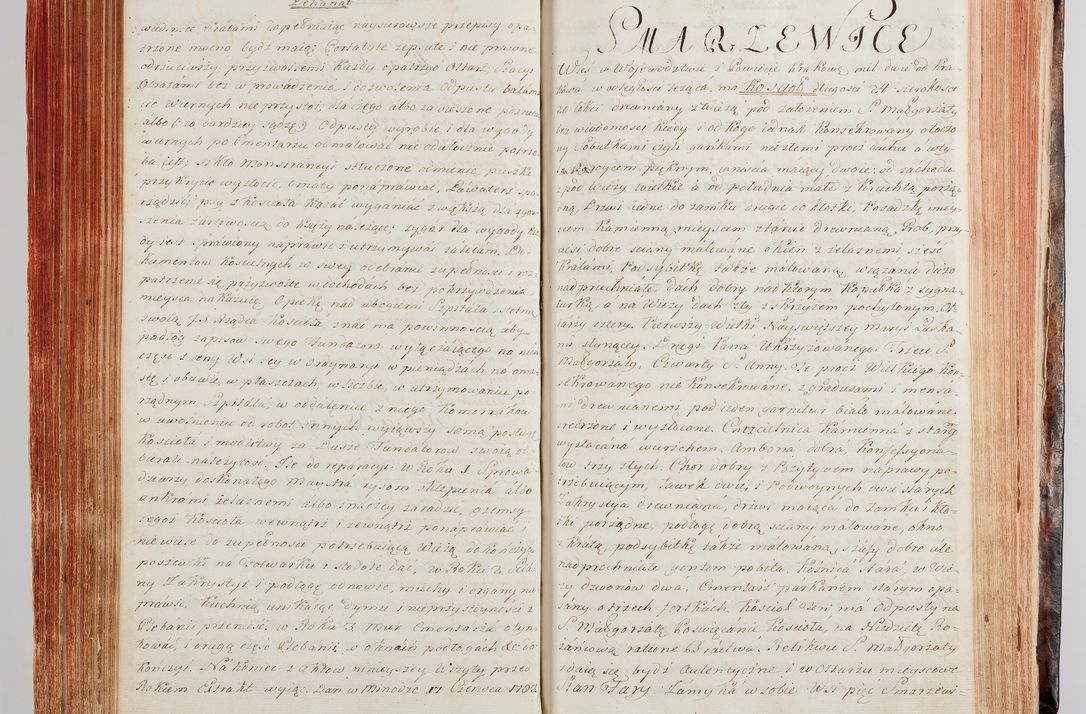 Zebrana
wudrzec kratami dopełniaiąc naysurowsze przepisy opa-
trzone mocno bydź maią; Portatyle zepsute i nie prawne
odrzeciwszy przyzwoitemi każdy opatrzyć Ołtarz, Stacye
Obrazami bez wprowadzenia i dozwolenia Odpustu bałamu-
cić Wiernych nie przystoi, dla czego albo zawieszone
albo (: co bardziey sądzę :) Odpusty wyrobić i dla wygody
wiernych po Cmentarzu odmalować nie odwłocznie potrze-
ba iest; szkło monstrancyi stłuczone odmienić, puszki
przykrycie wyzłocić, ornaty ponaprawiać, Lawaterz spo-
rządzić psy z Kościoła kazać wyganiać z większą dla zgor-
szenia żarliwością do Księży należące; zygar dla wygody kie-
dy iest sprawiony naprawić i utrzymywać zalecam. Do-
kumentow Kościelnych w swey odebranie zupełności i roz-
patrzenie się przyzwoite w dochodach bez pokrzywdzenia
mieysca nakazuię. Opiekę nad ubogiemi Szpitala istotną
swoią J.X. Rządca Kościoła znać ma powinnością aby
podług zapisow swego Fundatora wyłączaiącego na nich
część z ceny Wsi tey w Ordynaryi w pieniądzach na oma-
stę i obuwie, w płaszczach, w liczbie, w utrzymowaniu po-
rządnym Szpitala, w oddaleniu z niego Komornikow
w uwolnieniu od robot innych wyiąwszy samą posługę
Kościoła i modlitwy za Dusze Fundatorow swoią od-
bierali należytość. Ile do reparacyi: w Roku 1 Sprowa-
dziwszy doskonałego maystra rysom sklepienia albo
ankrami żelaznemi albo inaczey zaradzić, gzemsy
tegoż Kościoła wewnątrz i zewnątrz ponaprawiać i
nie wiele do zupełności potrzebuiącą Wieżą dokończyć,
poszewki na Folwarku i stodole dać, w Roku 2. Scia-
ny Zakrystyi i podłogę odnowić, muchy i organy na-
prawić, Kuchnią unikaiąc dymu i nieprzystoyności z
Plebanii przenieść. w Roku 3. mur Cmentarza otyn-
kować, i drugą część Plebanii, w oknach podłogach &c do-
kończyć. Na koniec z aktow ninieyszey Wizyty przed
Rokiem Extrakt wyiąć. Dan w Minodze 17 Czerwca 1783

SMARZEWICE
Wieś w Woiewodztwie i Powiecie Krakows. mil dwie od Kra-
kowa w odległości leżąca, ma Kościoł długości 24 szerokości
20 łokci drewniany z wieżą pod założeniem S. Małgorzaty
bez wiadomości kiedy i od kogo iednak Konsekrowany otoczo-
ny Sobutkami czyli gankami niezłemi procz dachu a w tyle
Ogroycem pięknym, wniścia maiący dwoie: od zachodu
z pod Wieży wielkie a od południa małe z Kruchtą porzą-
dną, Drzwi iedne do zamku drugie do kłotki, Posadzkę miey-
scem kamienną, mieyscem z tarcic drewnianą. Grob. przy-
ciesi dobre sciany malowane okien z żelaznemi sześć
kratami, Podsybitkę także malowaną, wiązanie dużo
nadpruchniałe, dach dobry nad którym Kopułka z sygna-
turką, a na Wieży dach zły z skrzyżem pochylonym. Oł-
tarzy cztery. Pierwszy Wielki Nayświętszey Maryi Łaska-
mi słynącey, Drugi Pana Ukrzyżowanego, Trzeci S.
Małgorzaty, Czwarty S. Anny. Te procz Wielkiego Kon-
sekrowanego nie Konsekrowane, z gradusami i mensa-
mi drewnianemi, pod ieden garnitur biało malowane
srebrzone i wyzłocone. Chrzcielnica kamienna z starą
wyzłacaną wierzchem. Ambona dobra, Konfessyona-
łow trzy złych. Chor dobry z Pozytywem naprawy po-
trzebuiącym, ławek dwie, i Podwoynych dwa starych
Zakrystya drewniana, drzwi maiąca do zamku i kło-
tki porządne, podłogę dobrą sciany malowane, okno
z kratą, podsybitkę także malowaną, szafy dobre ale
nadprochniałe gontem pobita, Kośnica stara, w Wie-
ży dzwonow dwa, Cmentarz parkanem starym opa-
sany o trzech fortkach. Kościoł ten ma Odpusty na
S. Małgorzatę Poswięcanie Kościoła, na Niedzielę Ro-
żańcową ratione Bractwa. Relikwie S. Małgorzaty
zdaią się bydź autentyczne i w Ołtarzu mieyscowe
Stan Fary. Zamyka w sobie Wsi pięć Smarzewi-